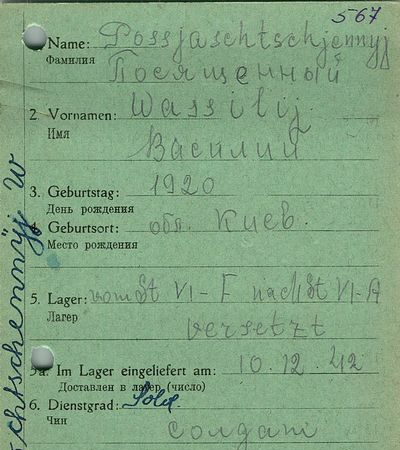 567
1. Name: Possjaschtschjennyj
Фамилия Посященный
2. Vornamen: Wassilij
Имя
Василий
3. Geburtstag: 1920
День рождения
4. Geburtsort: обл. Киев.
Место рождения
5. Lager: vom St VI-F nach St VI-A
Лагер
versetzt
5a. Im Lager eingeliefert am: 10.12.42
Доставлен в лагер (число)
6. Dienstgrad: Sold.
Чин
солдат
chtschennyj W